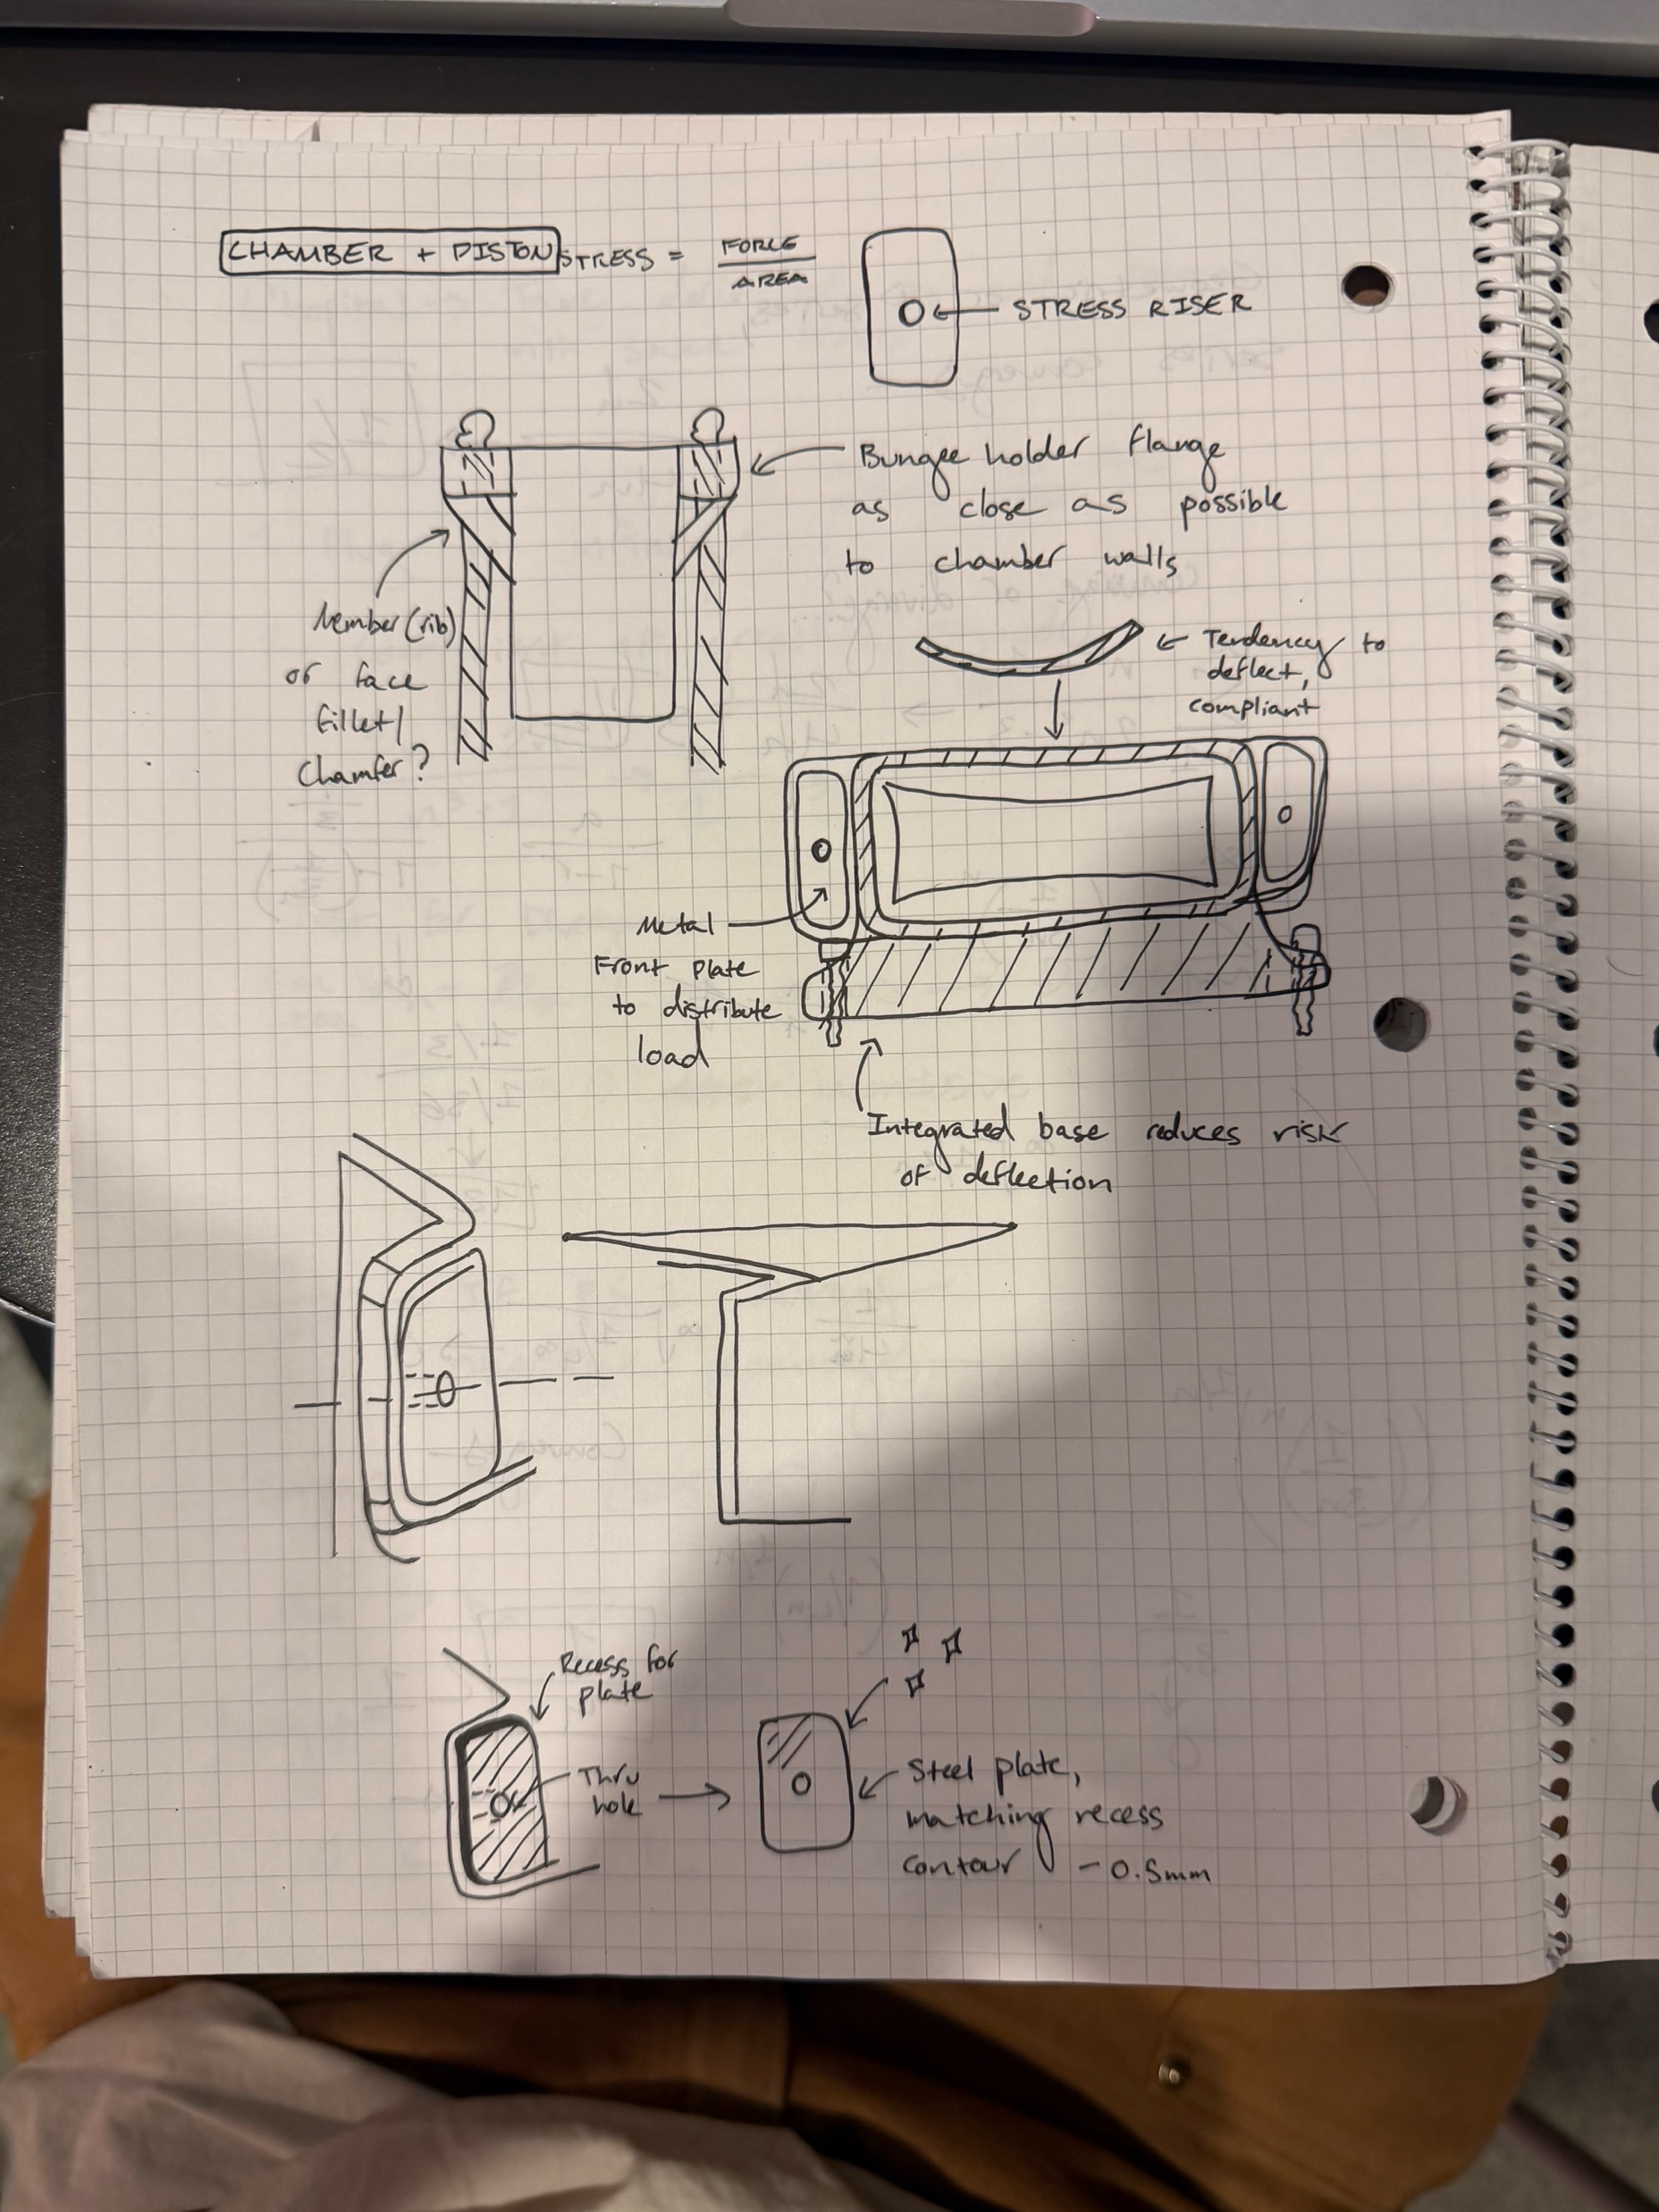 CHAMBER + PISTON
STRESS = FORCE
AREA
STRESS RISER
Bungee holder flange
as close as possible
to chamber walls
Member (rib)
or face
fillet/
chamfer?
Tendency to
deflect,
compliant
Metal
Front plate
to distribute
load
Integrated base reduces risk
of deflection
Recess for
plate
Thru
hole
Steel plate,
matching recess
contour - 0.5mm